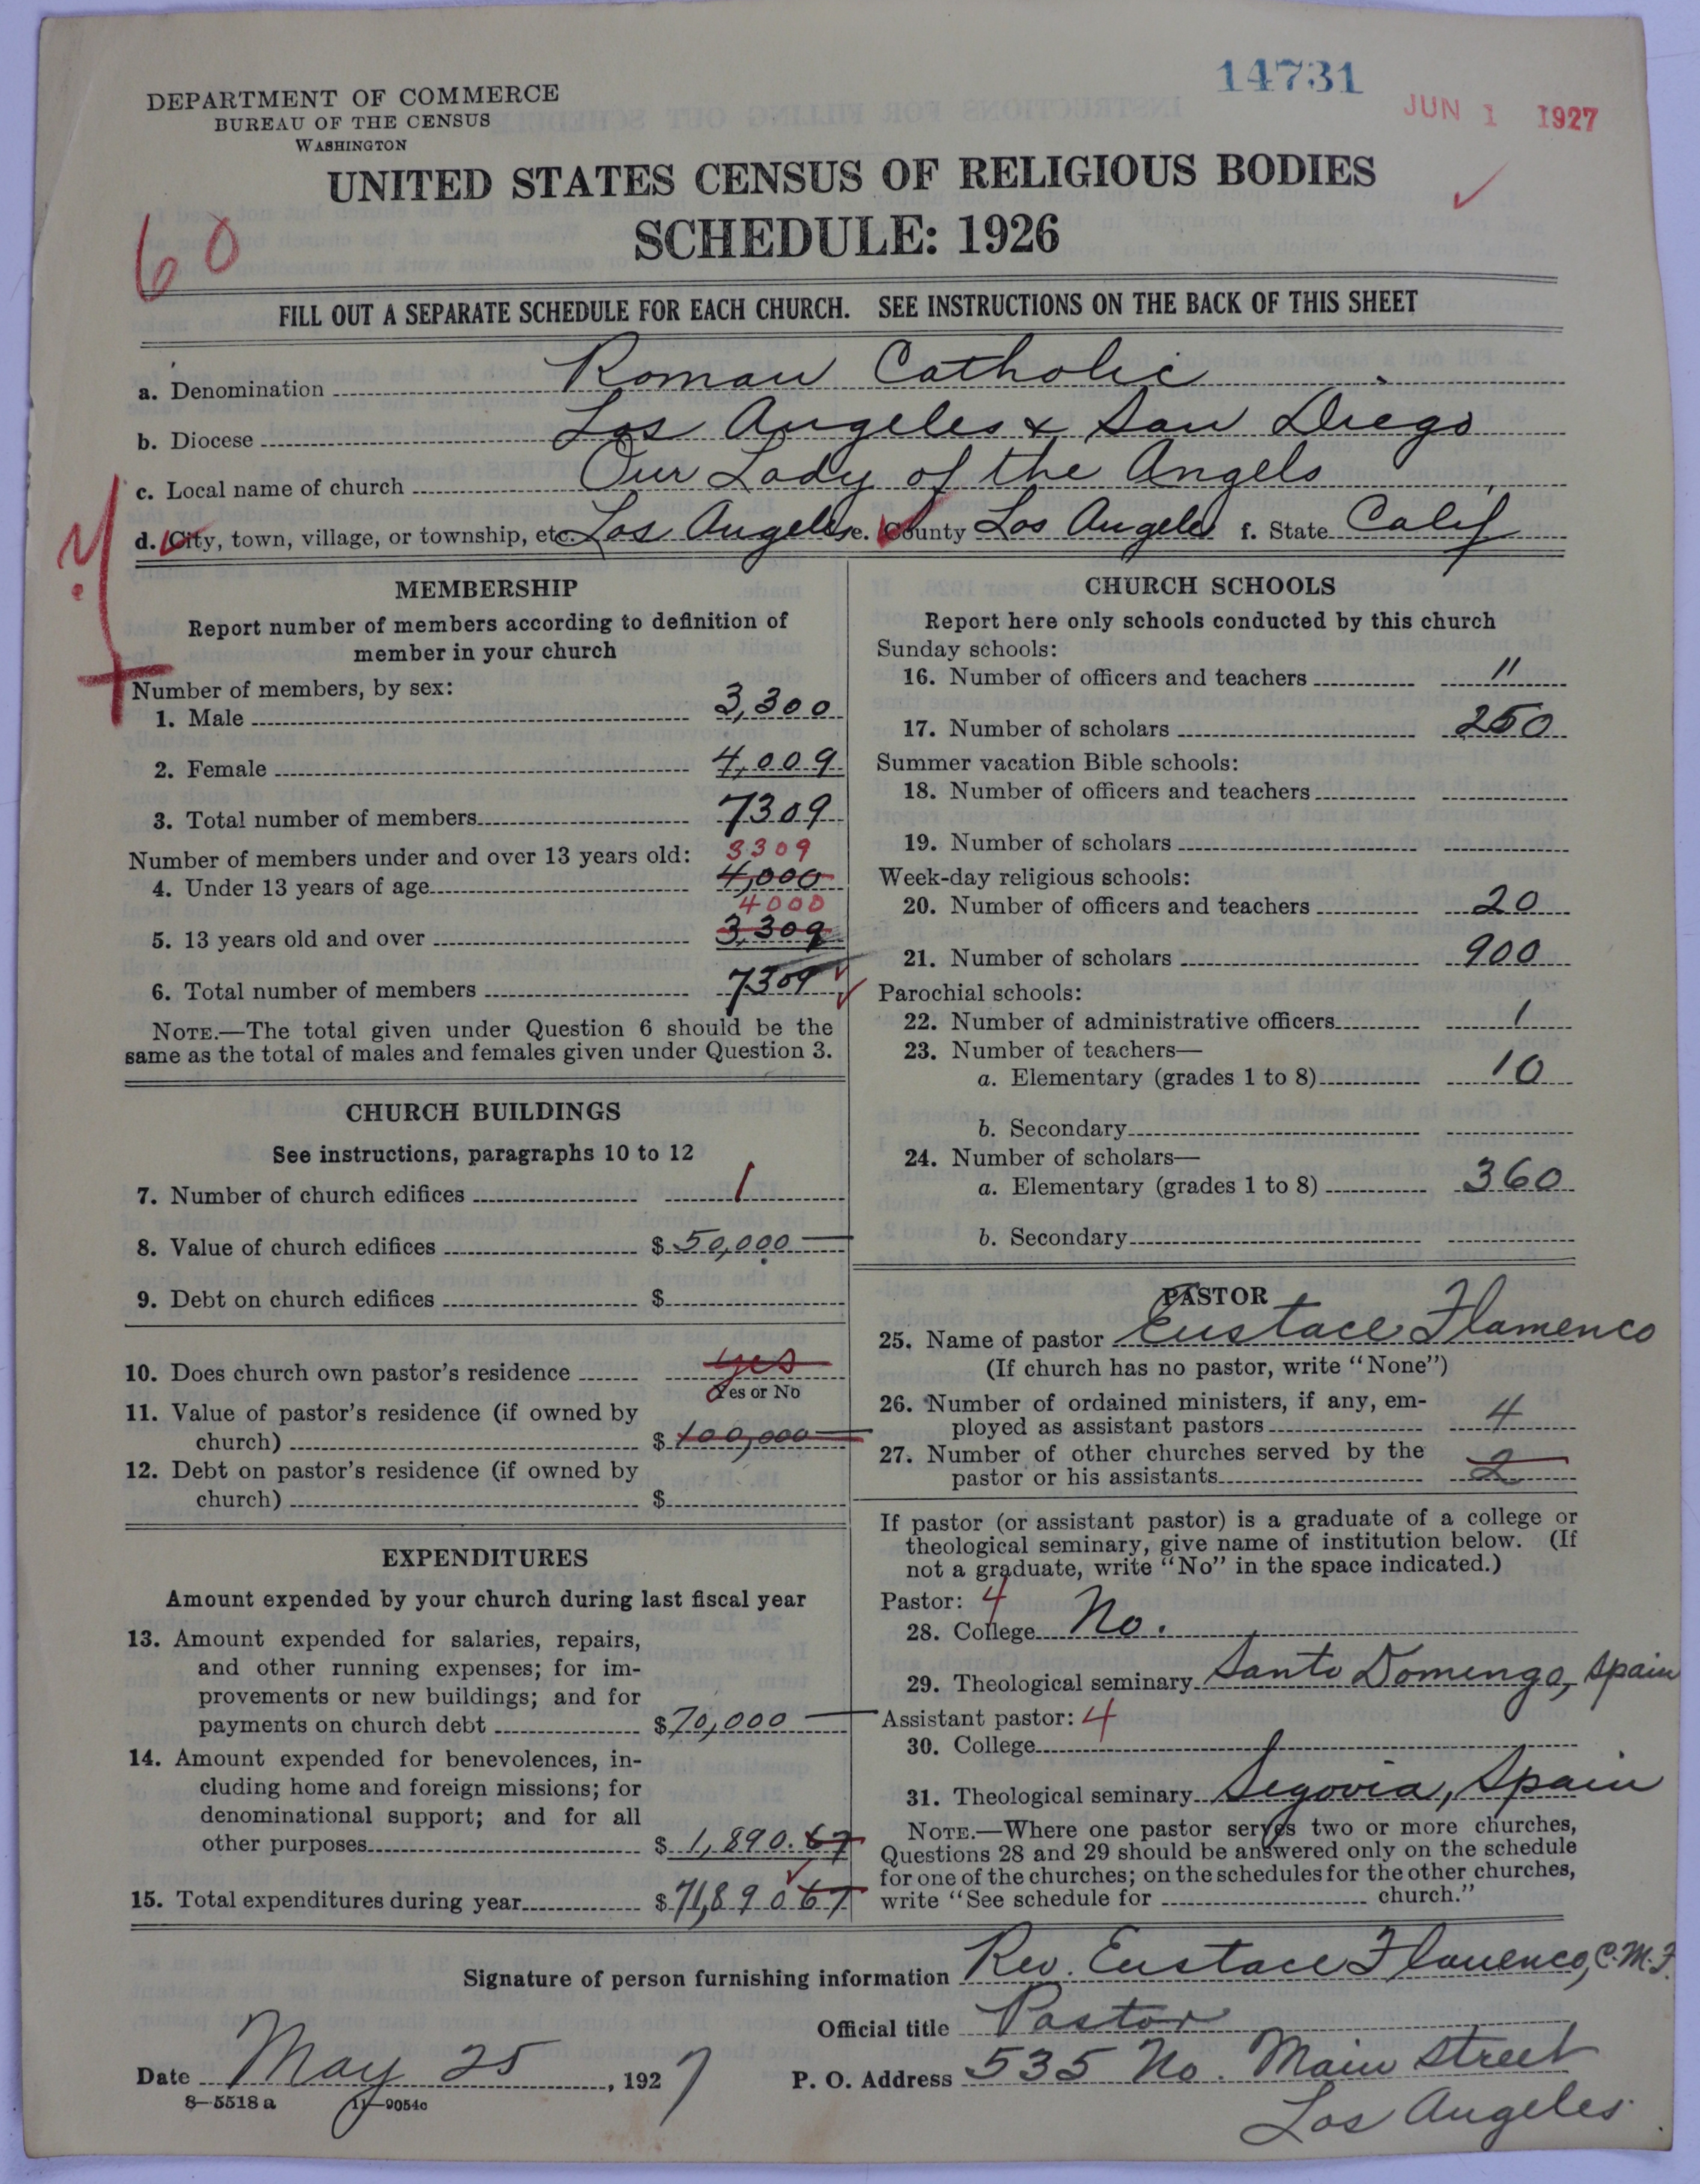 14731
JUN 1 1927
DEPARTMENT OF COMMERCE
BUREAU OF THE CENSUS
WASHINGTON
UNITED STATES CENSUS OF RELIGIOUS BODIES
SCHEDULE: 1926
60
FILL OUT A SEPARATE SCHEDULE FOR EACH CHURCH. SEE INSTRUCTIONS ON THE BACK OF THIS SHEET
a. Denomination Roman Catholic
b. Diocese Los Angeles & San Diego
c. Local name of church Our Lady of the Angels
d. City, town, village, or township, etc. Los Angeles e. County Los Angeles f. State Calif
MEMBERSHIP
Report number of members according to definition of
member in your church
Number of members, by sex:
1. Male 3,300
2. Female 4,009
3. Total number of members 7309
Number of members under and over 13 years old: 3309
4. Under 13 years of age 4,000
4000
5. 13 years old and over 3,309
6. Total number of members 7309
NOTE.—The total given under Question 6 should be the
same as the total of males and females given under Question 3.
CHURCH BUILDINGS
See instructions, paragraphs 10 to 12
7. Number of church edifices 1
8. Value of church edifices $ 50,000
9. Debt on church edifices $
10. Does church own pastor's residence yes
Yes or No
11. Value of pastor's residence (if owned by
church) $ 100,000
12. Debt on pastor's residence (if owned by
church) $
EXPENDITURES
Amount expended by your church during last fiscal year
13. Amount expended for salaries, repairs,
and other running expenses; for im-
provements or new buildings; and for
payments on church debt $ 70,000
14. Amount expended for benevolences, in-
cluding home and foreign missions; for
denominational support; and for all
other purposes $ 1,890.67
15. Total expenditures during year $ 71,890 67
CHURCH SCHOOLS
Report here only schools conducted by this church
Sunday schools:
16. Number of officers and teachers 11
17. Number of scholars 250
Summer vacation Bible schools:
18. Number of officers and teachers
19. Number of scholars
Week-day religious schools:
20. Number of officers and teachers 20
21. Number of scholars 900
Parochial schools:
22. Number of administrative officers 1
23. Number of teachers—
a. Elementary (grades 1 to 8) 10
b. Secondary
24. Number of scholars—
a. Elementary (grades 1 to 8) 360
b. Secondary
PASTOR
25. Name of pastor Eustace Flamenco
(If church has no pastor, write "None")
26. Number of ordained ministers, if any, em-
ployed as assistant pastors 4
27. Number of other churches served by the
pastor or his assistants 2
If pastor (or assistant pastor) is a graduate of a college or
theological seminary, give name of institution below. (If
not a graduate, write "No" in the space indicated.)
Pastor: 4
28. College No.
29. Theological seminary Santo Domingo, Spain
Assistant pastor: 4
30. College
31. Theological seminary Segovia, Spain
NOTE.—Where one pastor serves two or more churches,
Questions 28 and 29 should be answered only on the schedule
for one of the churches; on the schedules for the other churches,
write "See schedule for church."
Signature of person furnishing information Rev. Eustace Flamenco, C.M.F.
Official title Pastor
Date May 25, 1927
P. O. Address 535 No. Main Street
Los Angeles
8—5518 a 11—9054c